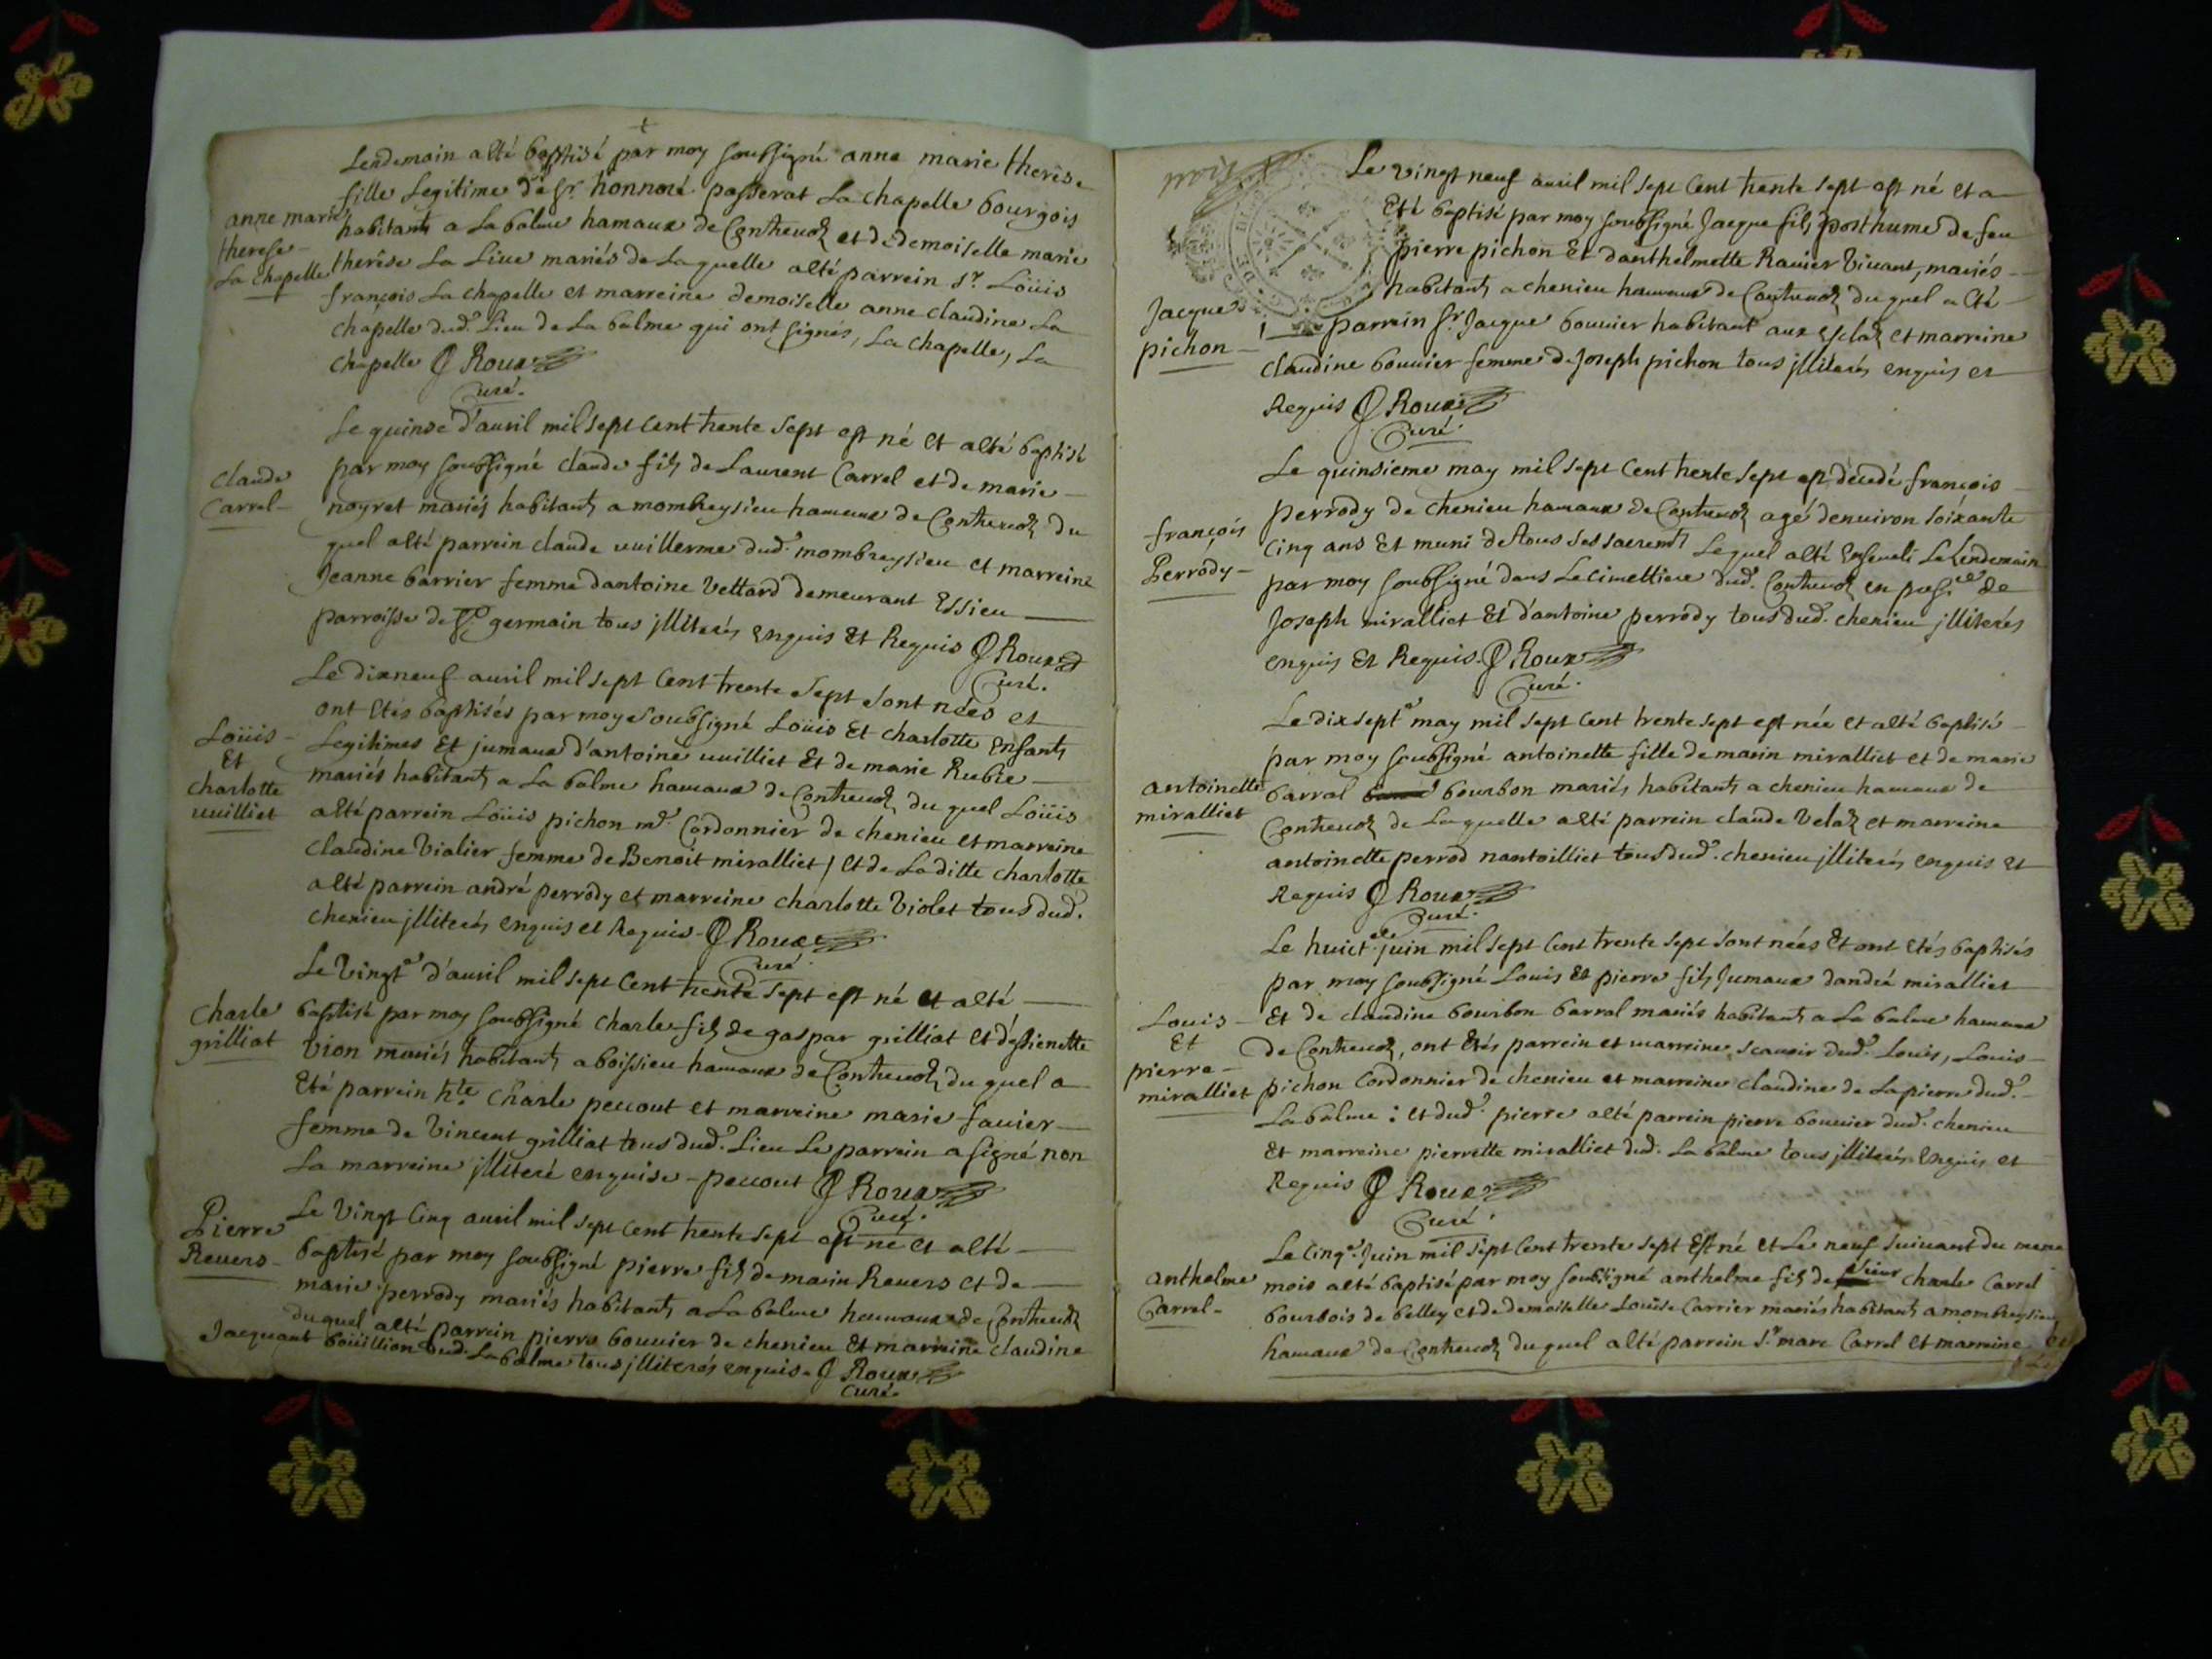 Lendemain a été baptisé par moy soussigné anne marie therèse
fille Legitime de Sr. honnoré passerat La chapelle bourgois
anne marie
therese
La chapelle
habitants a La balme hamaux de Contrevoz et de demoiselle marie
therèse La Live mariés de Laquelle a été parrein Sr. Loüis
françois La chapelle et marreine demoiselle anne claudine La
chapelle dud. Lieu de La balme qui ont signés, La chapelle, La
chapelle Roux
Curé.
Le quinse d'avril mil sept cent trente sept est né et a été baptisé
Claude
Carrel
par moy soubsigné claude fils de Laurent Carrel et de marie
noyret mariés habitants a mombreysieu hamaux de Contrevoz du
quel a été parrein claude vuillerme dud. mombreysieu et marreine
Jeanne barrier femme dantoine Vettard demeurant Essieu
parroisse de St germain tous jlliterés enquis Et Requis Roux
Curé.
Le dixneuf avril mil sept Cent trente Sept sont nées et
ont étés baptisés par moy soubsigné Loüis Et charlotte enfants
Loüis
Et
charlotte
vuilliet
Legitimes Et jumaux d'antoine vuilliet Et de marie Rubie
mariés habitants a La balme hamaux de Contrevoz, du quel Loüis
a été parrein Loüis pichon md. Cordonnier de chenieu et marreine
claudine Vialier femme de Benoit miralliet / Et de Laditte charlotte
a été parrein andré perrody et marreine charlotte Violet tous dud.
chenieu jlliterés enquis et Requis Roux
Curé
Le Vingte d'avril mil sept Cent trente sept est né et a été
charle
grilliat
baptisé par moy soubsigné charle fils de gaspar grilliat et d'estienette
Vion mariés habitants a boissieu hamaux de Contrevoz, du quel a
Eté parrein hte Charle peccout et marreine marie favier
femme de Vincent grilliat tous dud. Lieu Le parrein a signé non
La marreine jlliteré enquise peccout Roux
Curé.
Pierre
Revers
Le Vingt Cinq avril mil sept Cent trente sept est né et a été
baptisé par moy soubsigné pierre fils de marin Revers et de
marie perrody mariés habitants a La balme hamaux de Contrevoz
duquel a été parrein pierre bouvier de chenieu Et marreine claudine
Jacquant boüillion dud. La balme tous jlliterés enquis Roux
Curé.
Le vingt neuf avril mil sept Cent trente sept est né Et a
Eté baptisé par moy soubsigné Jacque fils posthume de feu
pierre pichon Et danthelmette Ravier Vivant, mariés
habitants a chenieu hamaux de Contrevoz du quel a été
Jacque
pichon
parrein Sr. Jacque bouvier habitant aux Esclaz et marreine
claudine bouvier femme de Joseph pichon tous jlliterés enquis et
Requis Roux
Curé.
Le quinsieme may mil sept Cent trente sept est décédé françois
françois
Perrody
perrody de chenieu hamaux de Contrevoz agé denviron soixante
Cinq ans Et muni de tous ses sacrements Lequel a été Enseveli Le Lendemain
par moy soubsigné dans Le cimettiere dud. Contrevoz en presce de
Joseph miralliet Et d'antoine perrody tous dud. chenieu jlliterés
enquis Et Requis. Roux
Curé.
Le dix septe may mil sept cent trente sept est née et a été baptisé
par moy soubsigné antoinette fille de marin miralliet et de marie
antoinette
miralliet
barral bourbon mariés habitants a chenieu hamaux de
Contrevoz de Laquelle a été parrein claude Velaz et marreine
antoinette perrod nantoilliet tous dud. chenieu jlliterés enquis et
Requis Roux
Curé.
Le huicte juin mil sept Cent trente sept sont nées Et ont étés baptisés
par moy soubsigné Louis Et pierre fils Jumaux dandré miralliet
Louis
Et
pierre
miralliet
Et de claudine bourbon barral mariés habitants a La balme hamaux
de Contrevoz, ont Etés parrein et marreine, scavoir dud. Louis, Louis
pichon Cordonnier de chenieu et marreine claudine de Lapierre dud.
La balme : et dud. pierre a été parrein pierre bouvier dud. chenieu
Et marreine pierrette miralliet dud. La balme tous jlliterés enquis et
Requis Roux
Curé.
Le Cinqe. Juin mil sept Cent trente sept Est né et Le neuf suivant du meme
anthelme
Carrel
mois a été baptisé par moy soubsigné anthelme fils de sieur charle Carrel
bourbois de belley et de demoiselle Louise Carrier mariés habitants a mombreysieu
hamaux de Contrevoz du quel a été parrein Sr. marc Carrel et marreine